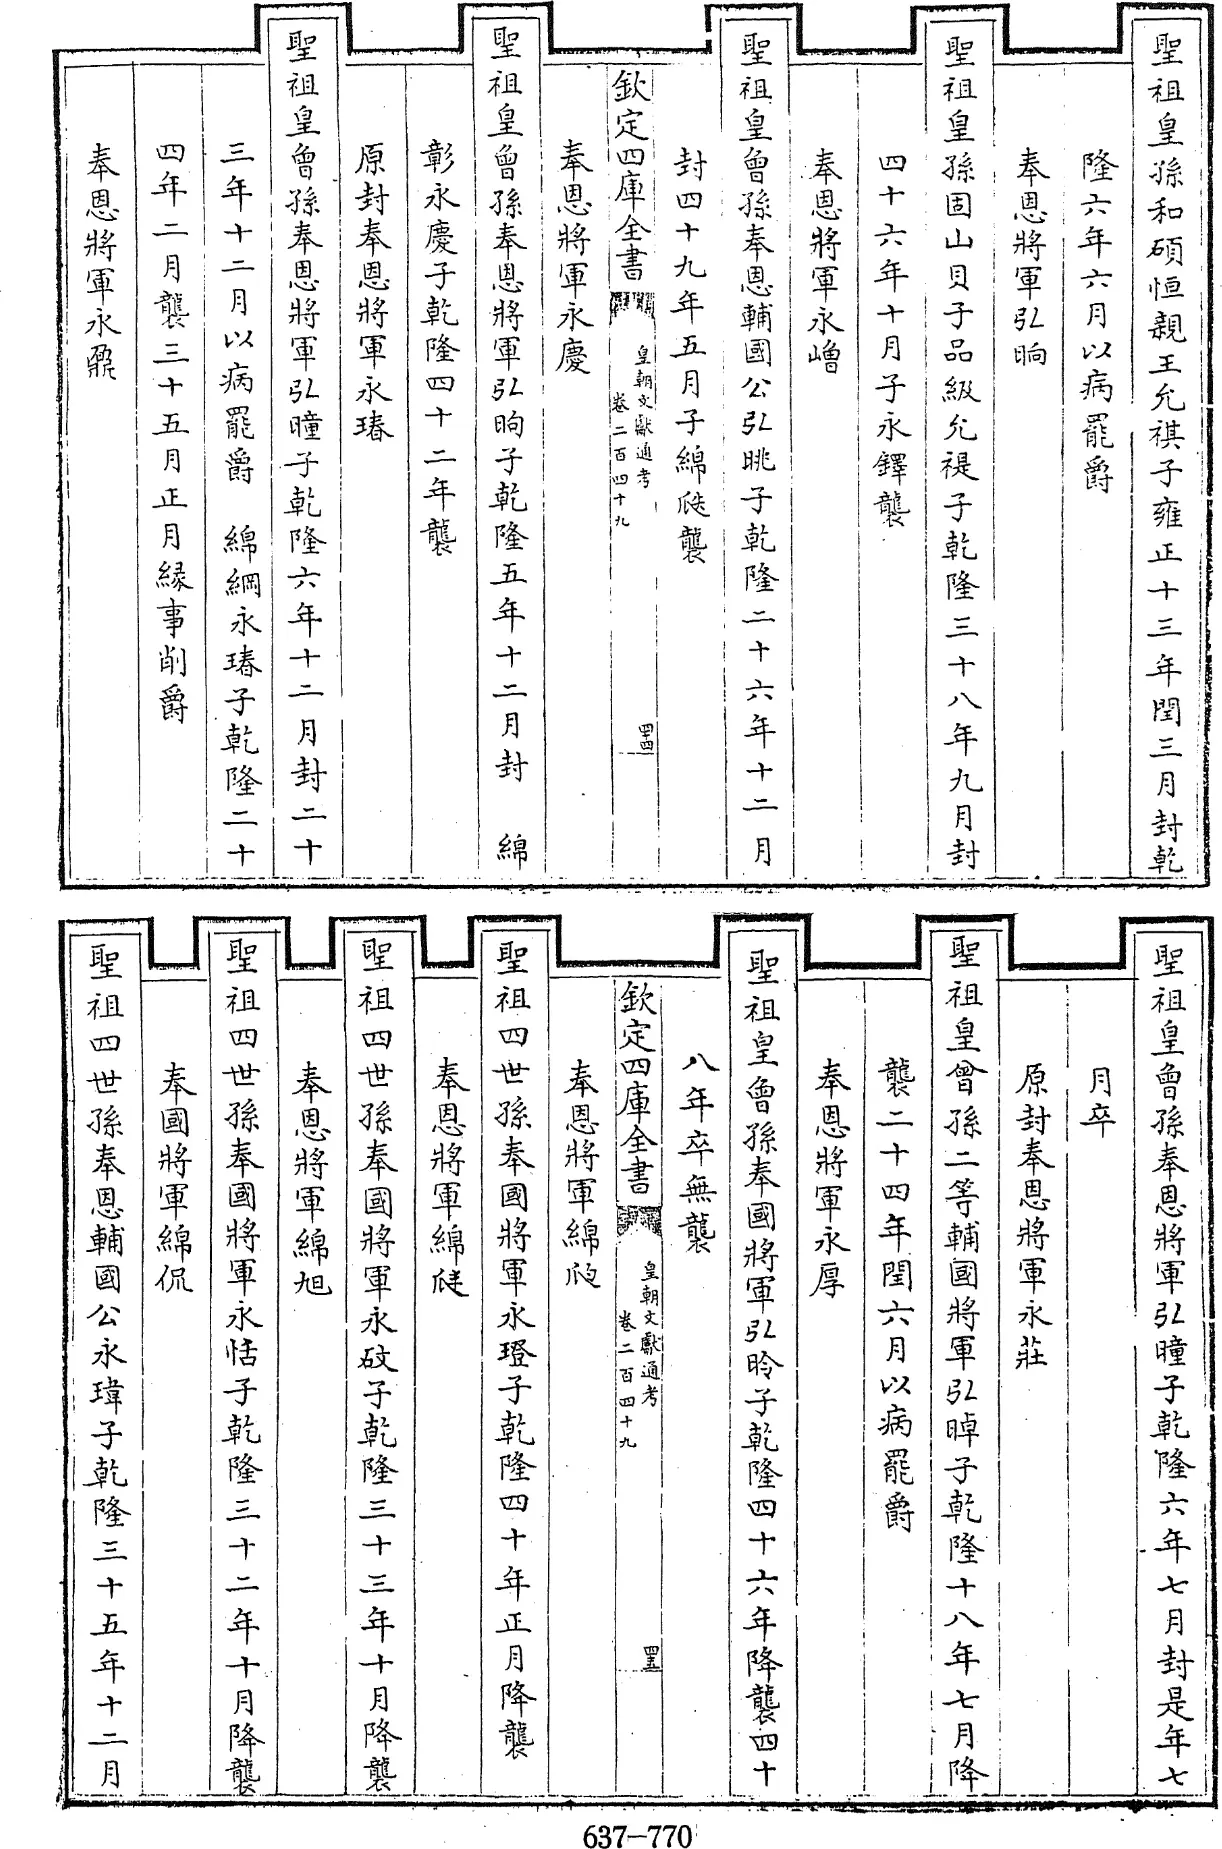 聖祖皇孫和碩恒親王允祺子雍正十三年閏三月封乾
隆六年六月以病罷爵
奉恩將軍弘晌
聖祖皇孫固山貝子品級允禔子乾隆三十八年九月封
四十六年十月子永鐸襲
奉恩將軍永嶒
聖祖皇曾孫奉恩輔國公弘晀子乾隆二十六年十二月
封四十九年五月子綿瓞襲
欽定四庫全書
皇朝文獻通考
卷二百四十九
四十四
奉恩將軍永慶
聖祖皇曾孫奉恩將軍弘晌子乾隆五年十二月封 綿
彰永慶子乾隆四十二年襲
原封奉恩將軍永瑃
聖祖皇曾孫奉恩將軍弘曈子乾隆六年十二月封二十
三年十二月以病罷爵 綿綱永瑃子乾隆二十
四年二月襲三十五月正月緣事削爵
奉恩將軍永鼐
聖祖皇曾孫奉恩將軍弘曈子乾隆六年七月封是年七
月卒
原封奉恩將軍永莊
聖祖皇曾孫二等輔國將軍弘晫子乾隆十八年七月降
襲二十四年閏六月以病罷爵
奉恩將軍永厚
聖祖皇曾孫奉國將軍弘昤子乾隆四十六年降襲四十
八年卒無襲
欽定四庫全書
皇朝文獻通考
卷二百四十九
四十五
奉恩將軍綿
聖祖四世孫奉國將軍永璒子乾隆四十年正月降襲
奉恩將軍綿
聖祖四世孫奉國將軍永砇子乾隆三十三年十月降襲
奉恩將軍綿旭
聖祖四世孫奉國將軍永恬子乾隆三十二年十月降襲
奉國將軍綿侃
聖祖四世孫奉恩輔國公永瑋子乾隆三十五年十二月
637-770